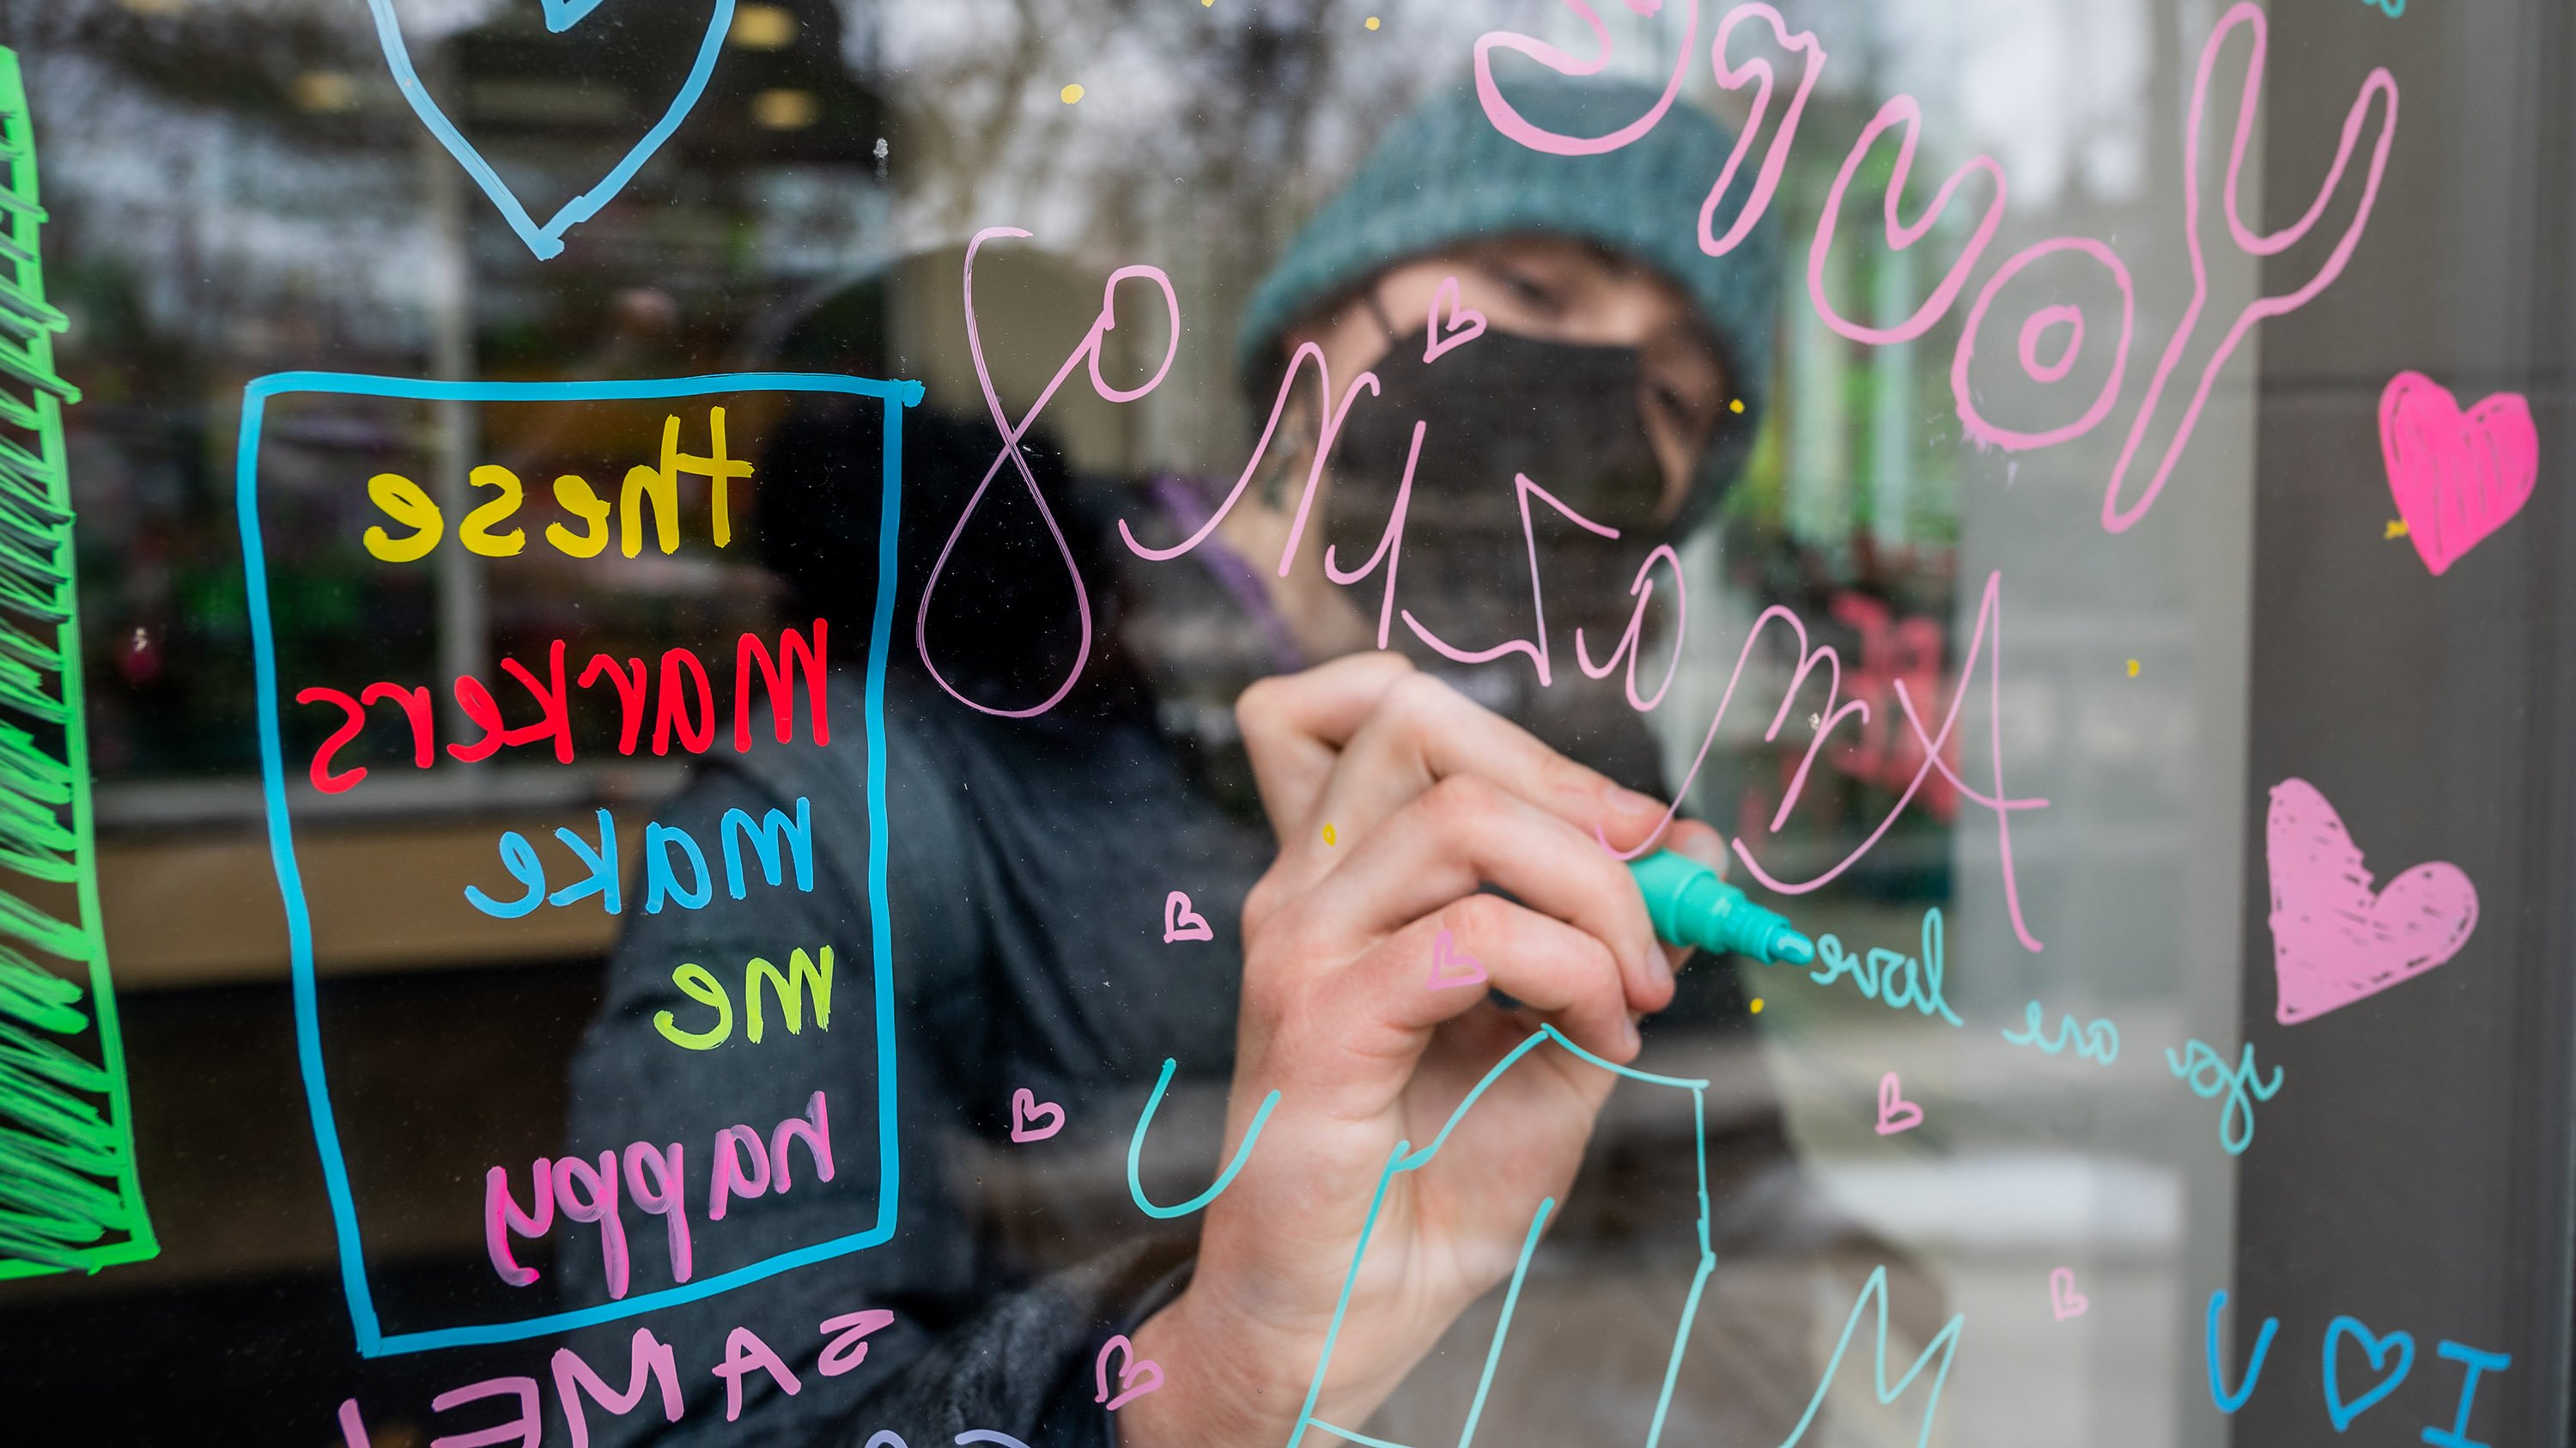 these
markers
make
me
happy
SAME!
Amazing
you are love
I ♡ U